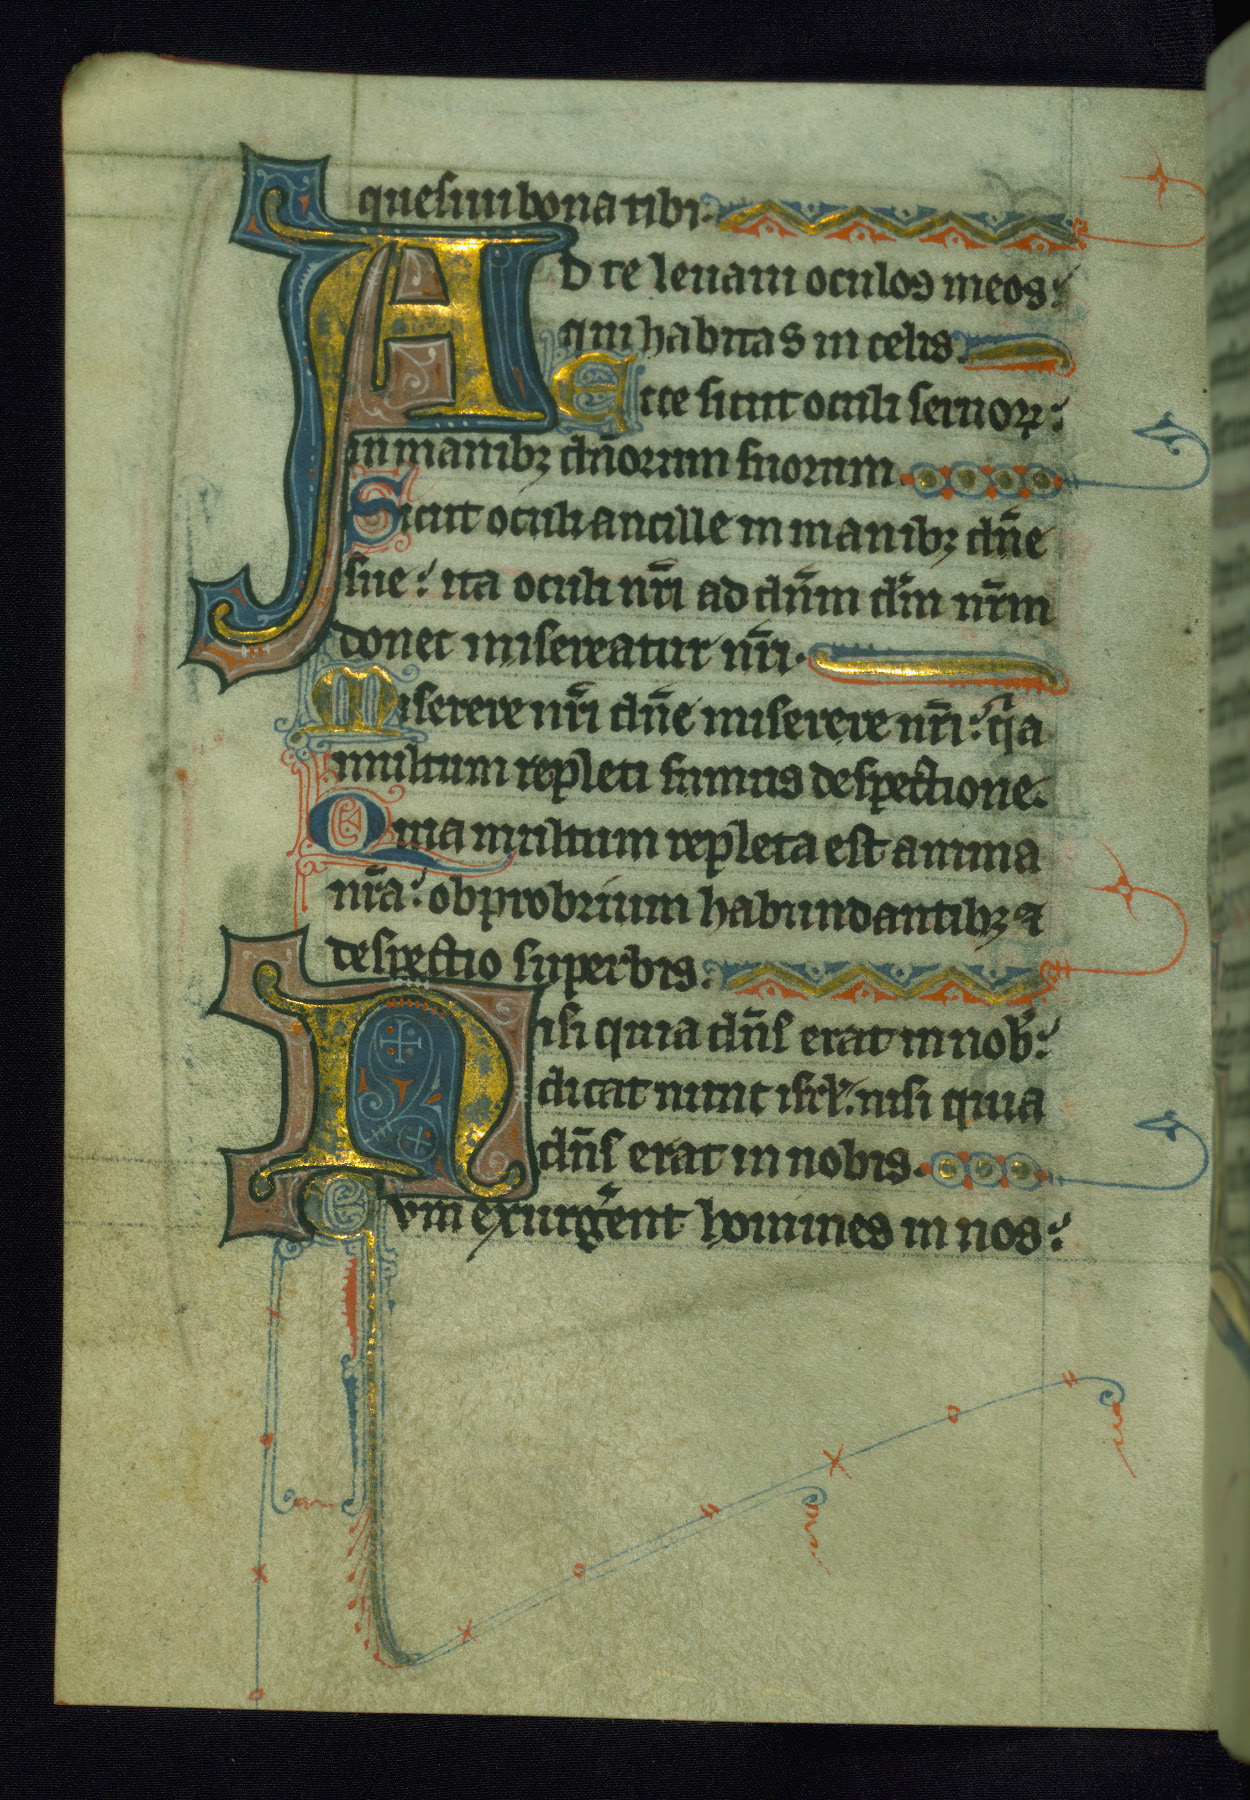 quesiui bona tibi.
Ad te leuaui oculos meos:
qui habitas in celis.
Ecce sicut oculi seruoꝝ:
in manibꝫ dn̄orum suorum.
Sicut oculi ancille in manibꝫ dn̄e
sue: ita oculi nr̄i ad dn̄m dm̄ nr̄m
donec misereatur nr̄i.
Miserere nr̄i dn̄e miserere nr̄i: qͥa
multum repleti sumus despectione.
Quia multum repleta est anima
nr̄a: obprobrium habundantibꝫ ⁊
despectio superbis.
Nisi quia dn̄s erat in nob̄:
dicat nunc isrl̄: nisi quia
dn̄s erat in nobis.
Cvm exurgēent homines in nos: